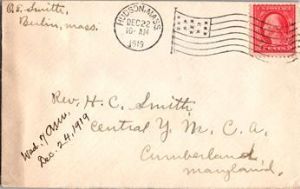 R.S. Smith,
Berlin, Mass.
HUDSON, MASS.
DEC 22
10 AM
1919
Rev. H. C. Smith
Central Y. M. C. A.
Cumberland
Maryland.
Wed. 7 A.M.
Dec. 24, 1919